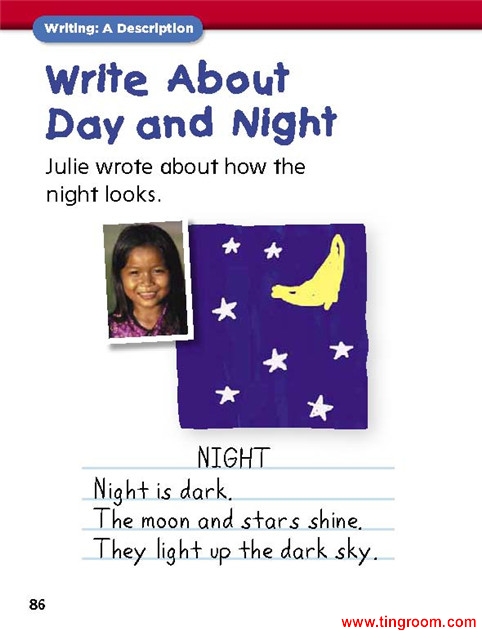 Writing: A Description
Write About
Day and Night
Julie wrote about how the
night looks.
NIGHT
Night is dark.
The moon and stars shine.
They light up the dark sky.
86
www.tingroom.com